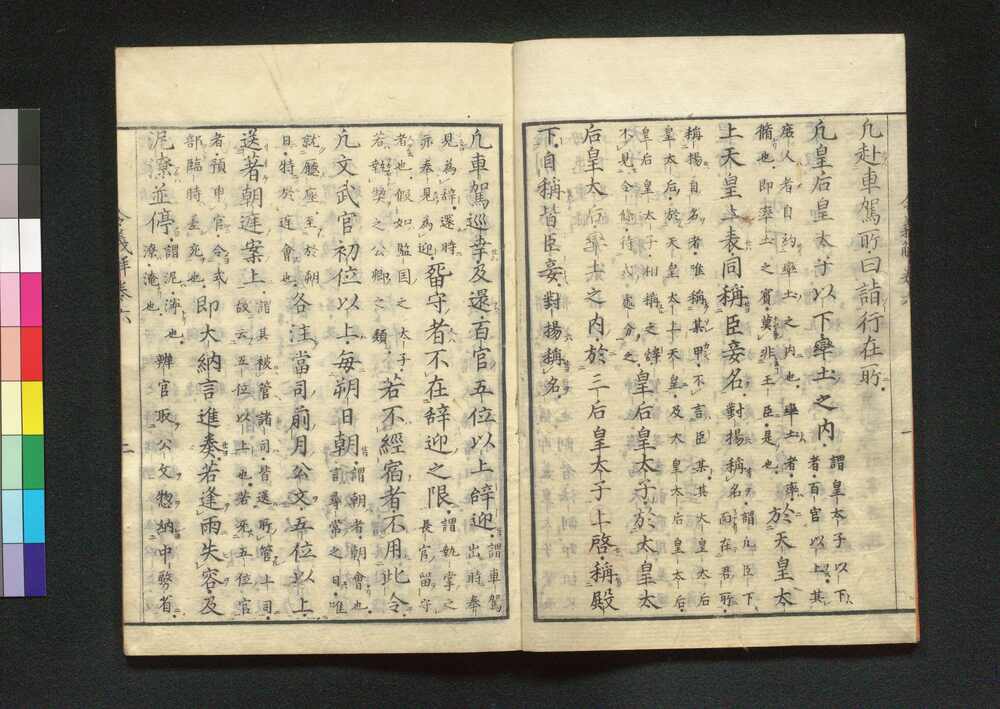 凡赴車駕所曰詣行在所
凡皇后皇太子以下率土之内
謂皇太子以下
者百官以上其
庶人者自約率土之内也率土者率
循也即率土之賓莫非王臣是也
於天皇太
上天皇上表同稱臣妾名對揚稱名
謂凡臣下
面在君所
稱揚自名者唯稱某甲不言臣某其太皇太后
皇太后於天皇太上天皇及太皇太后皇太后
皇后皇太子相稱之辭
不見令條待式處分之
皇后皇太子於太皇太
后皇太后率土之内於三后皇太子上啓稱殿
下自稱皆臣妾對揚稱名
一
凡車駕巡幸及還百官五位以上辞迎
謂車駕
出時奉
見為辞還時
亦奉見為迎
留守者不在辞迎之限
謂執掌之
長官留守
者也假如監国之太子
若執契之公卿之類
若不經宿者不用此令
凡文武官初位以上毎朔日朝
謂朝者朝會也
言尋常之日唯
就廳座至於朝
日特於廷會也
各注當司前月公文五位以上
送著朝廷案上
謂其被管諸司皆送所管上司
故云五位以上也若无五位官
者預申官令式
部臨時差充也
即大納言進奏若逢雨失容及
泥潦並停
謂泥濘也
潦淹也
辨官取公文惣納中務省
令義解巻六
二